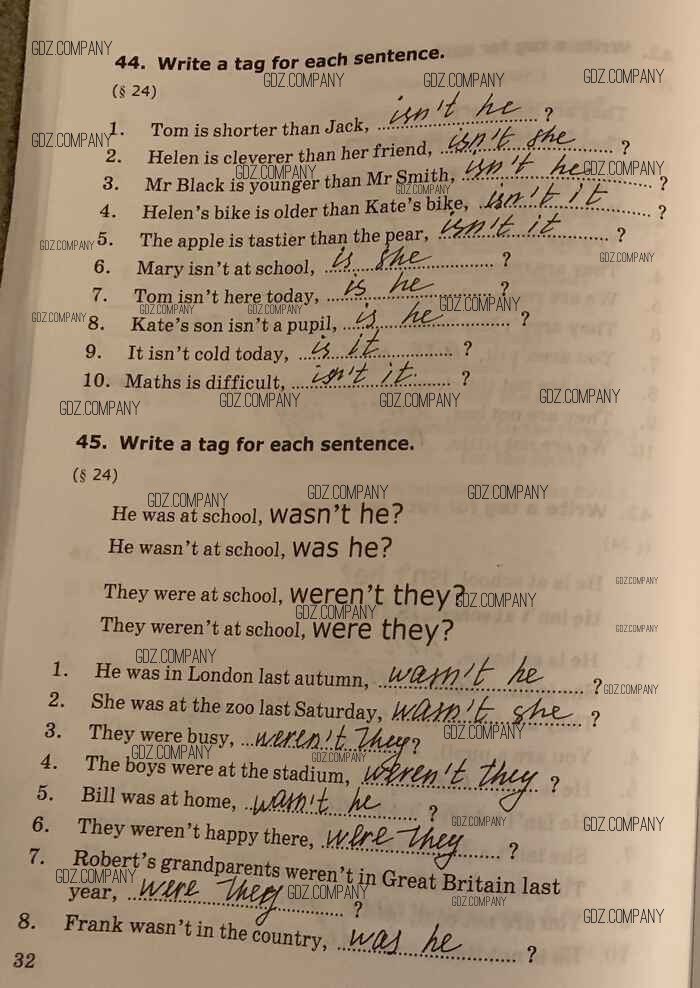 GDZ.COMPANY
44. Write a tag for each sentence.
GDZ.COMPANY GDZ.COMPANY GDZ.COMPANY
(§ 24)
1. Tom is shorter than Jack, isn't he ?
GDZ.COMPANY
2. Helen is cleverer than her friend, isn't she ?
GDZ.COMPANY GDZ.COMPANY
3. Mr Black is younger than Mr Smith, isn't he ?
GDZ.COMPANY
4. Helen's bike is older than Kate's bike, isn't it ?
5. The apple is tastier than the pear, isn't it ?
GDZ.COMPANY GDZ.COMPANY
6. Mary isn't at school, is she ?
7. Tom isn't here today, is he ?
GDZ.COMPANY GDZ.COMPANY GDZ.COMPANY GDZ.COMPANY
8. Kate's son isn't a pupil, is he ?
9. It isn't cold today, is it ?
10. Maths is difficult, isn't it ?
GDZ.COMPANY GDZ.COMPANY GDZ.COMPANY GDZ.COMPANY
45. Write a tag for each sentence.
(§ 24)
GDZ.COMPANY GDZ.COMPANY GDZ.COMPANY
He was at school, wasn't he?
He wasn't at school, was he?
GDZ.COMPANY
They were at school, weren't they?
GDZ.COMPANY GDZ.COMPANY
They weren't at school, were they?
GDZ.COMPANY
GDZ.COMPANY
1. He was in London last autumn, wasn't he ?
GDZ.COMPANY
2. She was at the zoo last Saturday, wasn't she ?
GDZ.COMPANY
3. They were busy, weren't they ?
GDZ.COMPANY GDZ.COMPANY
4. The boys were at the stadium, weren't they ?
5. Bill was at home, wasn't he ?
GDZ.COMPANY GDZ.COMPANY
6. They weren't happy there, were they ?
7. Robert's grandparents weren't in Great Britain last
GDZ.COMPANY GDZ.COMPANY GDZ.COMPANY
year, were they ?
GDZ.COMPANY
8. Frank wasn't in the country, was he ?
32